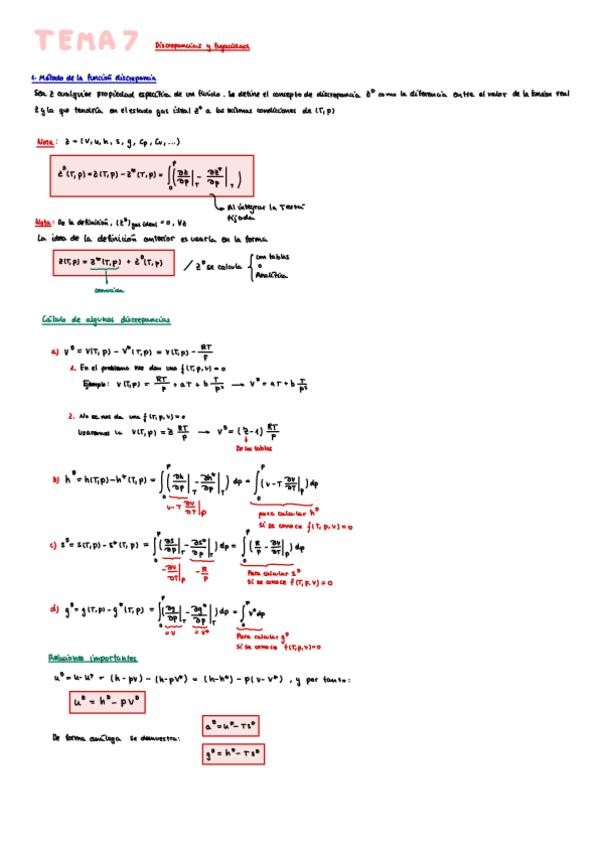 TEMA 7 Discrepancias y Fugacidad
1. Método de la función discrepancia
Sea z cualquier propiedad específica de un fluido. Se define el concepto de discrepancia z^D como la diferencia entre el valor de la función real
z y la que tendría en el estado gas ideal z* a las mismas condiciones de (T, p)
Nota: z = (v, u, h, s, g, cp, cv, ...)
z^D(T, p) = z(T, p) - z*(T, p) = ∫₀^p (∂z/∂p|_T - ∂z*/∂p|_T)
Al integrar la T está
fijada
Nota: De la definición, (z^D) gas ideal = 0, ∀z
La idea de la definición anterior es usarla en la forma
z(T, p) = z*(T, p) + z^D(T, p) / z^D se calcula { con tablas
o
Analítica
conocida
Cálculo de algunas discrepancias
a) v^D = v(T, p) - v*(T, p) = v(T, p) - RT/p
1. En el problema nos dan una f(T, p, v) = 0
Ejemplo: v(T, p) = RT/p + aT + b T/p² → v^D = aT + b T/p²
2. No se nos da una f(T, p, v) = 0
Usaremos la v(T, p) = Z RT/p → v^D = (Z-1) RT/p
De las tablas
b) h^D = h(T, p) - h*(T, p) = ∫₀^p (∂h/∂p|_T - ∂h*/∂p|_T) dp = ∫₀^p (v - T ∂v/∂T|_p) dp
v - T ∂v/∂T|_p
para calcular h^D
si se conoce f(T, p, v) = 0
c) s^D = s(T, p) - s*(T, p) = ∫₀^p (∂s/∂p|_T - ∂s*/∂p|_T) dp = ∫₀^p (R/p - ∂v/∂T|_p) dp
-∂v/∂T|_p -R/p
Para calcular s^D
si se conoce f(T, p, v) = 0
d) g^D = g(T, p) - g*(T, p) = ∫₀^p (∂g/∂p|_T - ∂g*/∂p|_T) dp = ∫₀^p v^D dp
= v = v*
Para calcular g^D
si se conoce f(T, p, v) = 0
Relaciones importantes
u^D = u - u* = (h - pv) - (h - pv*) = (h - h*) - p(v - v*), y por tanto:
u^D = h^D - pv^D
a^D = u^D - Ts^D
De forma análoga se demuestra:
g^D = h^D - Ts^D